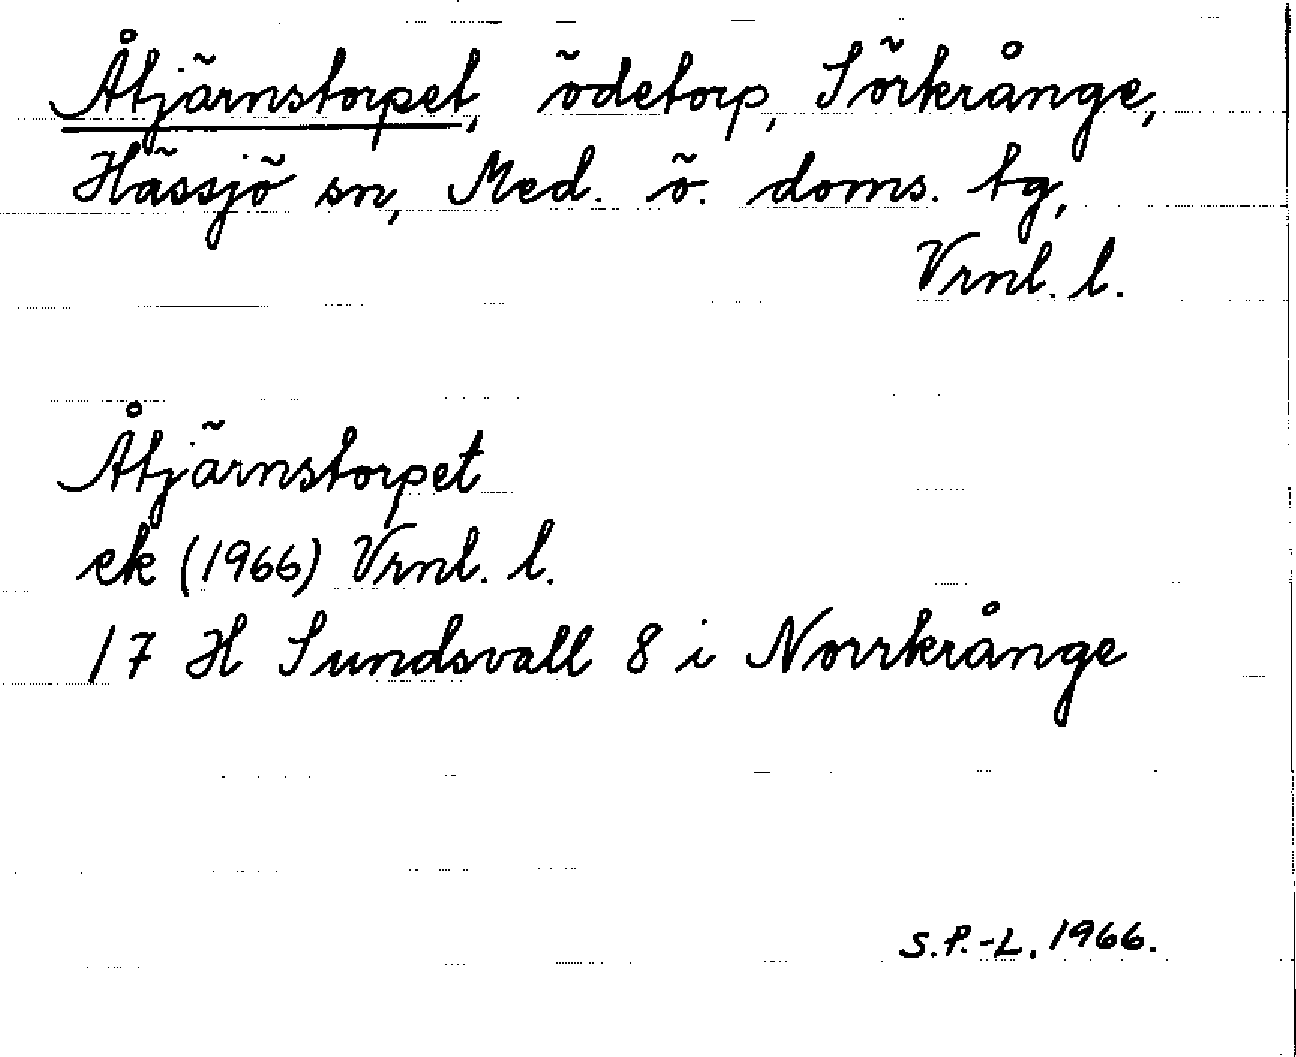 Åtjärnstorpet, ödetorp, Sörkrånge,
Hässjö sn, Med. ö. doms. tg,
Vrnl. l.
Åtjärnstorpet
ek (1966) Vrnl. l.
17 H Sundsvall 8 i Norrkrånge
S.P.-L. 1966.